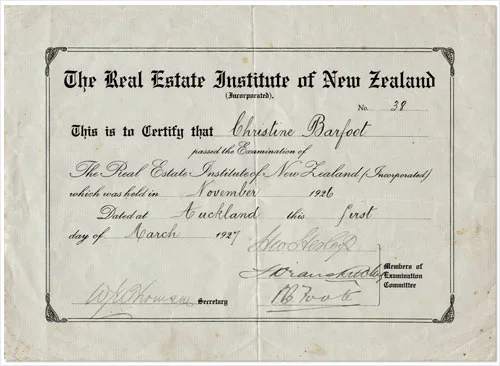 The Real Estate Institute of New Zealand
(Incorporated).
No. 38
This is to Certify that Christine Barfoot
passed the Examination of
The Real Estate Institute of New Zealand (Incorporated)
which was held in November 1926
Dated at Auckland this first
day of March 1927
Members of
Examination
Committee
Secretary
Foote